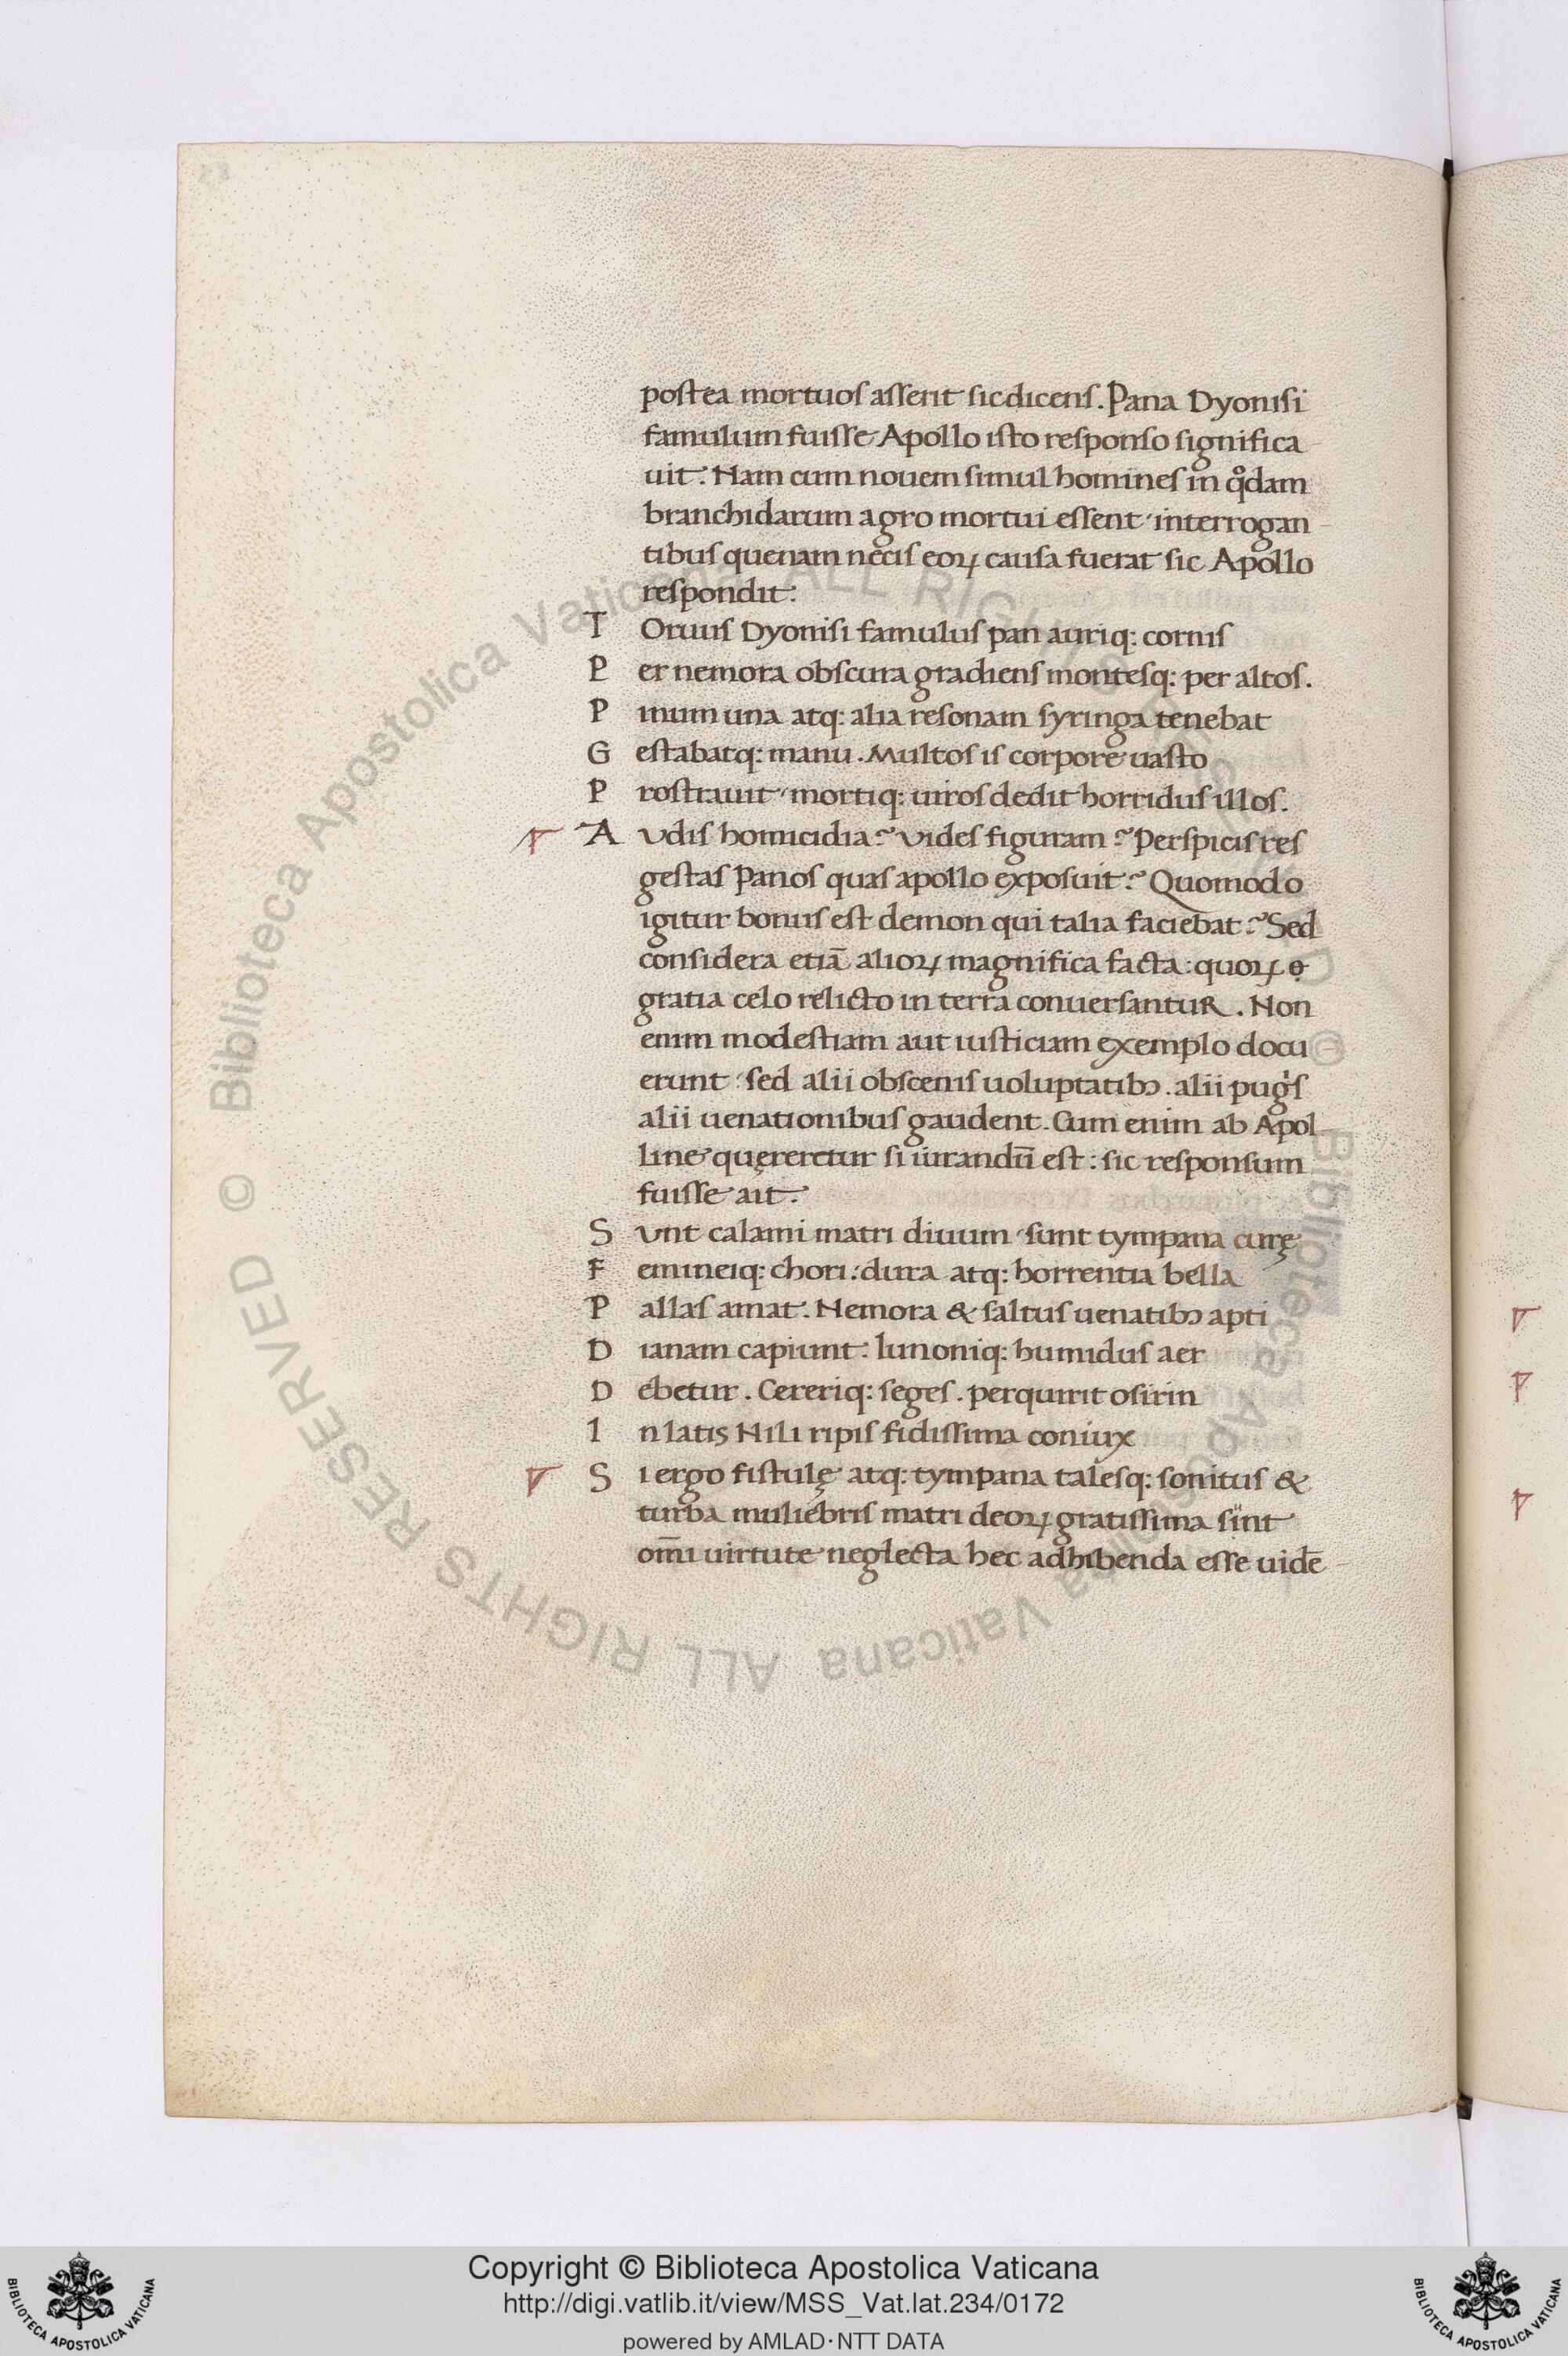 postea mortuos asserit sic dicens. Pana Dyonisi
famulum fuisse Apollo isto responso significa-
uit. Nam cum nouem simul homines in qͦdam
branchidarum agro mortui essent interrogan-
tibus quenam necis eoꝝ causa fuerat sic Apollo
respondit:
T Oruus Dyonisi famulus pan auriq: cornis
P er nemora obscura gradiens montesq: per altos.
P imum una atq: alia resonam syringa tenebat
G estabatq: manu. Multos is corpore uasto
P rostrauit mortiq: uiros dedit horridus illos.
A vdis homicidia? vides figuram? Perspicis res
gestas Panos quas apollo exposuit? Quomodo
igitur bonus est demon qui talia faciebat? Sed
considera etiā alioꝝ magnifica facta: quoꝝ
gratia celo relicto in terra conuersantur. Non
enim modestiam aut iusticiam exemplo docu-
erunt: sed alii obscenis uoluptatibꝫ. alii pugͥs
alii uenationibus gaudent. Cum enim ab Apol-
line quęreretur si iurandū est: sic responsum
fuisse ait.
S vnt calami matri diuum sunt tympana curę
F emineiq: chori: dura atq: horrentia bella
P allas amat. Nemora & saltus uenatibꝫ apti
D ianam capiunt. Iunoniq: humidus aer
D ebetur. Cereriq: seges. perquirit osirin
I n latis Nili ripis fidissima coniux
S i ergo fistulę atq: tympana talesq: sonitus &
turba muliebris matri deoꝝ gratissima sint
om̄i uirtute neglecta hec adhibenda esse uidē-
© Biblioteca Apostolica Vaticana ALL RIGHTS RESERVED © Biblioteca Apostolica Vaticana ALL RIGHTS RESERVED
Copyright © Biblioteca Apostolica Vaticana
http://digi.vatlib.it/view/MSS_Vat.lat.234/0172
powered by AMLAD·NTT DATA
BIBLIOTECA APOSTOLICA VATICANA
BIBLIOTECA APOSTOLICA VATICANA